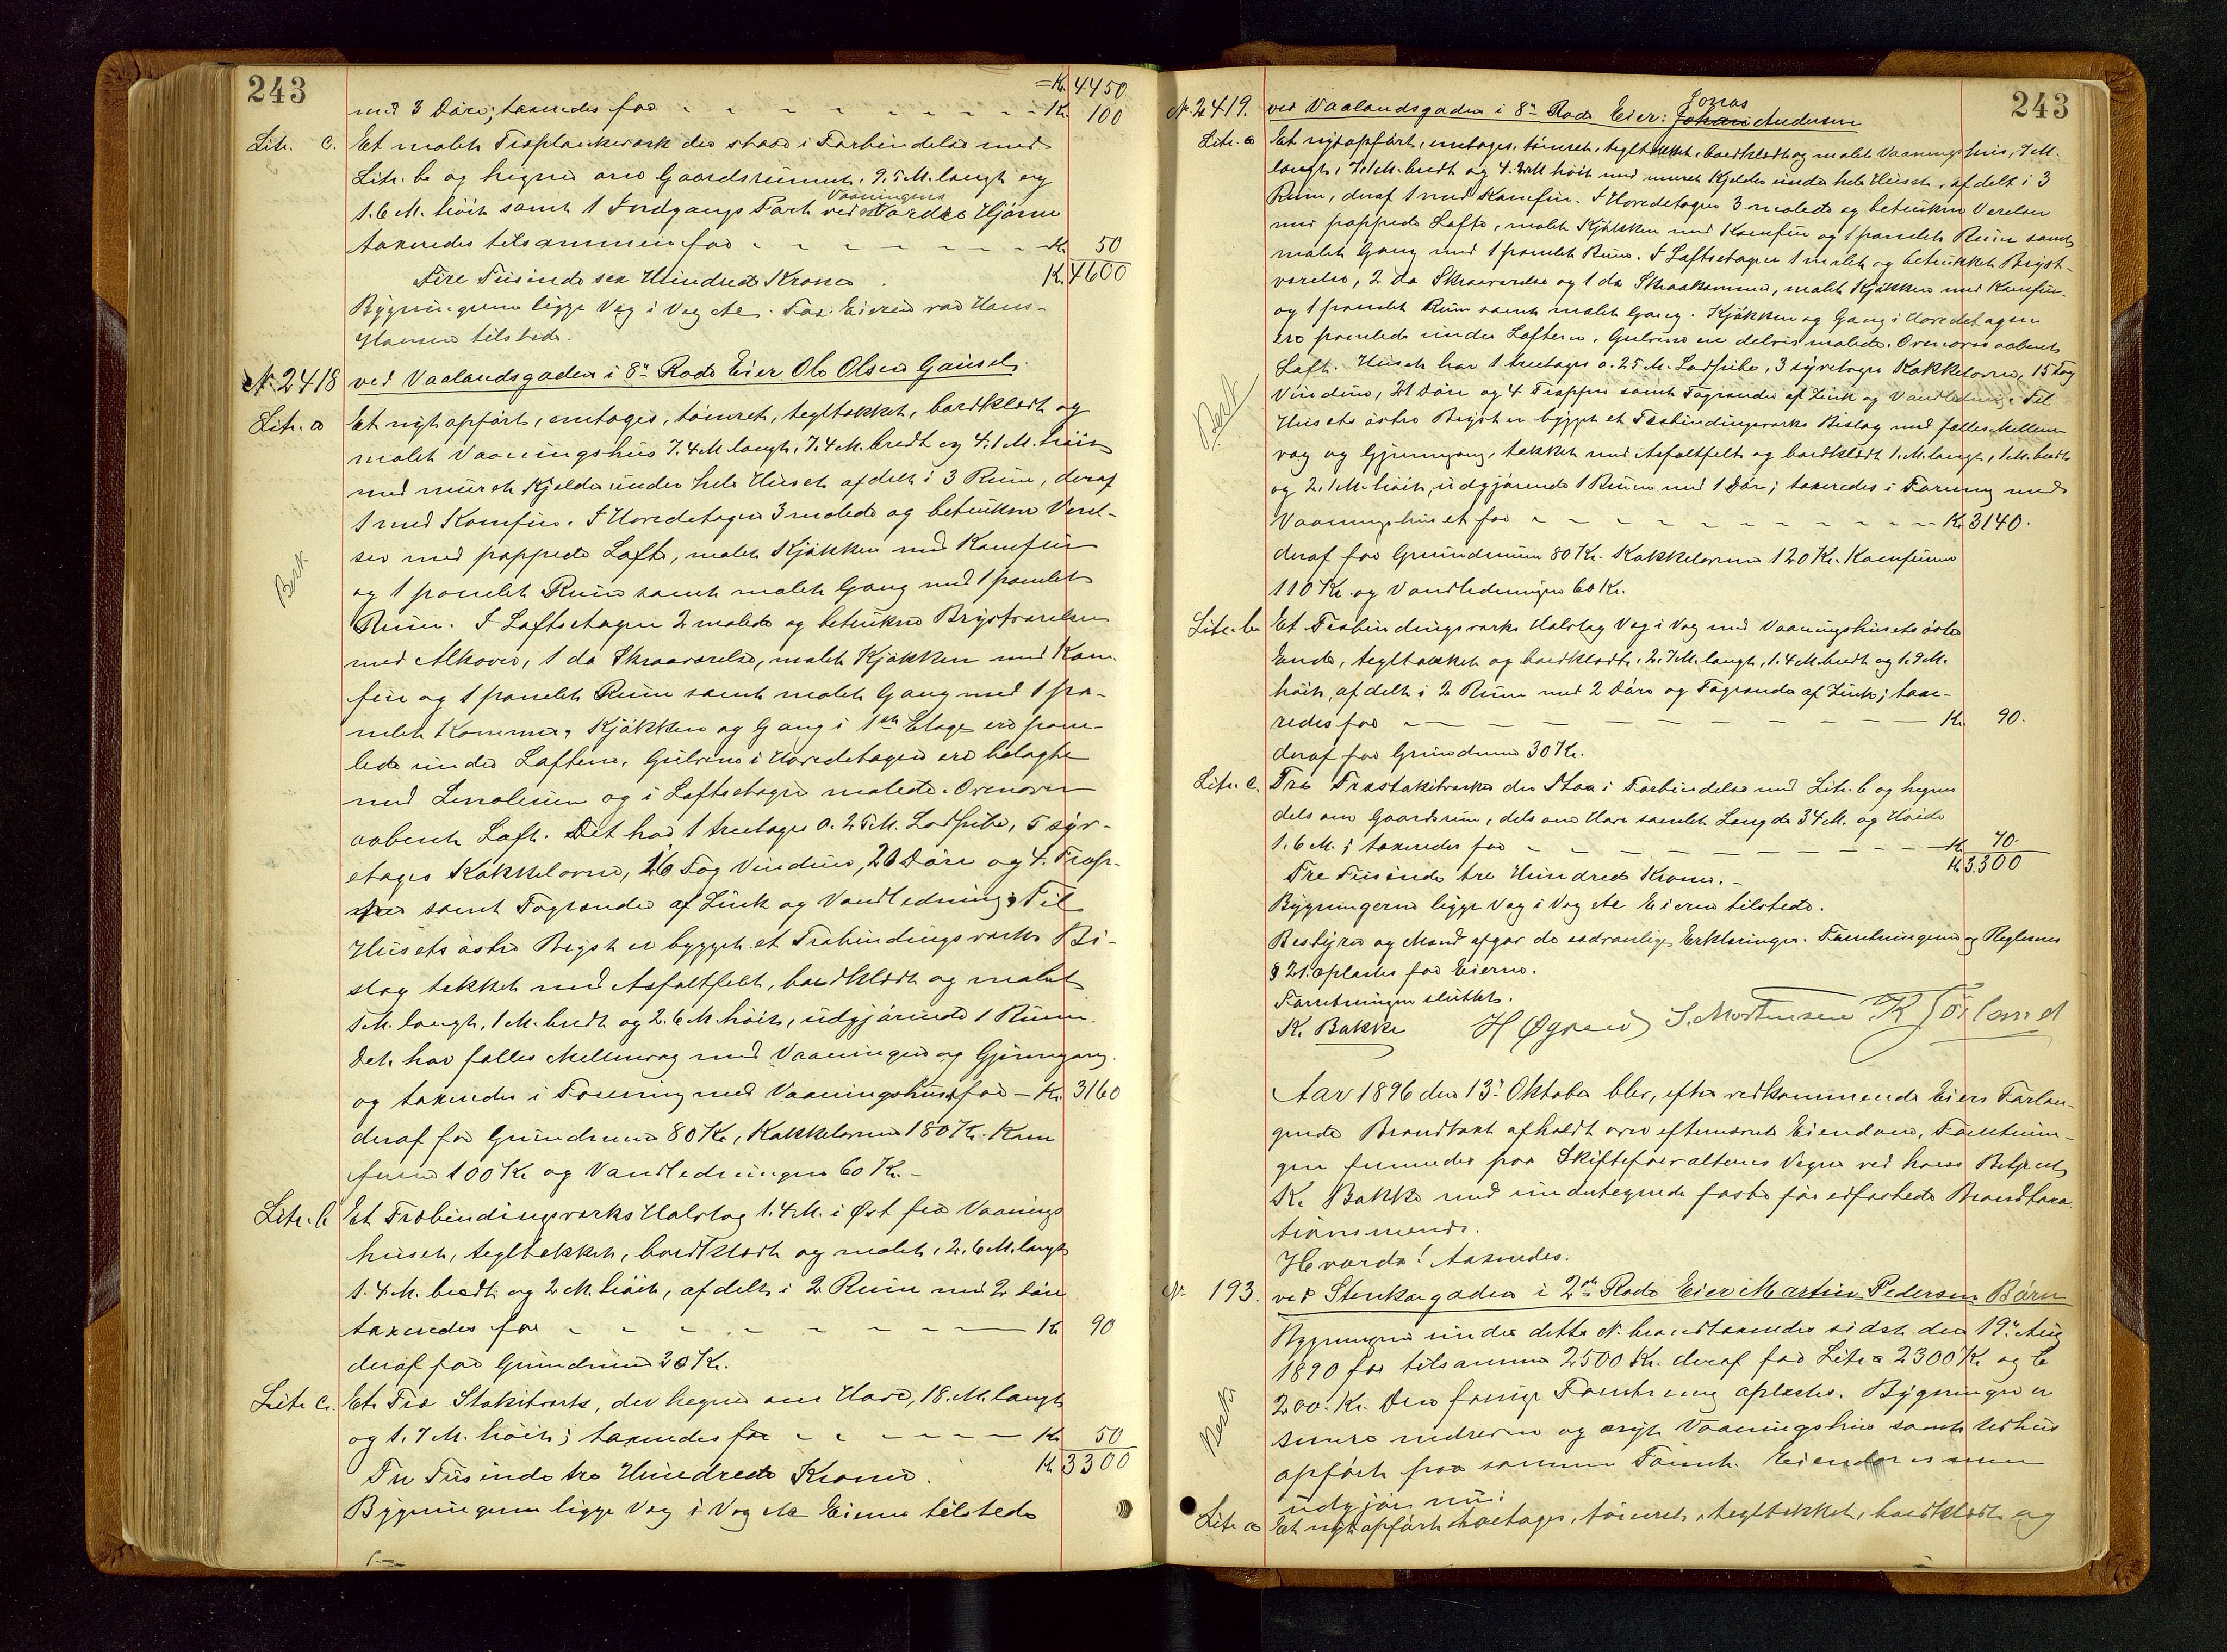 243
Kr. 4450
med 3 Døre; taxeredes for - - - - - - - - Kr. 100
Litr. c. Et malet Træplankeværk der staar i Forbindelse med
Litr. b og hegner om Gaardsrummet. 9.5 M. langt og
1.6 M. høit samt 1 Indgangs Port ved Vaaningens nordre Hjørne
taxeredes tilsammen for - - - - - - - Kr. 50
Fire Tusinde sex Hundrede Kroner. Kr. 4600
Bygningerne ligge Væg i Væg
For Eieren var Hans
Hansen tilstede.
No. 2418 ved Vaalandsgaden i 8de Rode Eier Ole Olsen Gausel.
Litr. a Et nyt opført, enetages, tømret, tegltækket, bordklædt og
malet Vaaningshus 7.4 M. langt, 7.4 M. bredt og 4.1 M. høit
med muret Kjelder under hele Huset afdelt i 3 Rum, deraf
1 med Komfur. I Hovedetagen 3 malede og betrukne Værel-
ser med pappede Lofte, malet Kjøkken med Komfur
og 1 panelet Rum samt malet Gang med 1 panelet
Rum. I Loftsetagen 2 malede og betrukne Brystværelser
med Alkove, 1 do Skraaværelse, malet Kjøkken med Kom-
fur og 1 panelet Rum samt malet Gang med 1 pa-
nelet Kammer. Kjøkken og Gang i 1ste Etage ere pane-
lede under Loftene. Gulvene i Hovedetagen ere belagte
med Linoleum og i Loftsetagen malede. Ovenover
aabent Loft. Det har 1 treetages 0.25 M. Lodpibe, 5 syv-
etages Kakkelovne, 16 Fag Vinduer, 20 Døre og 4 Trap-
per samt Tagrender af Zink og Vandledning; Til
Husets østre Bryst er bygget et Træbindingsværks Bi-
slag tækket med Asfaltfelt, bordklædt og malet
1 M. langt, 1 M. bredt og 2.6 M. høit, udgjørende 1 Rum.
Det har fælles Mellemvæg med Vaaningen og Gjennemgang
og taxeredes i Forening med Vaaningshuset for - Kr. 3160
deraf for Grundmur 80 Kr, Kakkelovne 180 Kr. Kom
furene 100 Kr og Vandledningen 60 Kr. -
Litr. b Et Træbindingsværks Halvtag 1.4 M. i Øst fra Vaanings
huset, tegltækket, bordklædt og malet, 2.6 M. langt
1.4 M. bredt og 2 M. høit, afdelt i 2 Rum med 2 Døre
taxeredes for - - - - - - - - Kr 90
deraf for Grundmur 20 Kr.
Litr c. Et Træ Stakitværk, der hegner om Have, 18 M. langt
og 1.7 M. høit; taxeredes for - - - - - - Kr 50
Tre Tusinde tre Hundrede Kroner. Kr 3300
Bygningerne ligge Væg i Væg Eieren tilstede
Besk
243
No. 2419. ved Vaalandsgaden i 8de Rode Eier: Johan Jonas Andersen
Litr. a Et nyt opført, enetages, tømret, tegltækket, bordklædt og malet Vaaningshus, 7 M.
langt, 7.1 M. bredt og 4.2 M. høit med muret Kjelder under hele Huset, afdelt i 3
Rum, deraf 1 med Komfur. I Hovedetagen 3 malede og betrukne Værelser
med pappede Lofte, malet Kjøkken med Komfur og 1 panelet Rum samt
malet Gang med 1 panelet Rum. I Loftsetagen 1 malet og betrukket Bryst-
værelse, 2 do Skraaværelse og 1 do Skraakammer, malet Kjøkken med Komfur
og 1 panelet Rum samt malet Gang. Kjøkken og Gang i Hovedetagen
ere panelede under Loftene. Gulvene ere delvis malede. Ovenover aabent
Loft. Huset har 1 treetages 0.25 M. Lodpibe, 3 syvetages Kakkelovne, 15 Fag
Vinduer, 21 Døre og 4 Trapper samt Tagrender af Zink og Vandledning; Til
Husets østre Bryst er bygget et Træbindingsværks Bislag med fælles Mellem
væg og Gjennemgang, tækket med Asfaltfelt og bordklædt 1 M. langt, 1 M. bredt
og 2.1 M. høit, udgjørende 1 Rum med 1 Dør; taxeredes i Forening med
Vaaningshuset for - - - - - - - - - - - - Kr 3140.
deraf for Grundmur 80 Kr. Kakkelovne 120 Kr. Komfurene
110 Kr. og Vandledningen 60 Kr.
Litr. b Et Træbindingsværks Halvtag Væg i Væg med Vaaningshusets østre
Ende, tegltækket og bordklædt, 2.7 M. langt, 1.4 M. bredt og 1.9 M.
høit, afdelt i 2 Rum med 2 Døre og Tagrende af Zink; taxe-
redes for - - - - - - - - - - Kr. 90.
deraf for Grundmur 30 Kr.
Litr. c. Træ Træstakitværker der staa i Forbindelse med Litr. b og hegner
dels om Gaardsrum, dels om Have samlet Længde 34 M. og Høide
1.6 M.; taxeredes for - - - - - - - - - Kr 70.
Tre Tusinde tre Hundrede Kroner. - Kr. 3300
Bygningerne ligge Væg i Væg Eieren tilstede.
Bestyrer og Mænd afgav de sædvanlige Erklæringer. Forretningerne og Reglernes
§ 21. oplæstes for Eierne.
Forretningen sluttet.
K. Bakke H Øgreid S. Mortensen K Jørland
Aar 1896 den 13de Oktober blev, efter vedkommende Eiers Forlan-
gende Brandtaxt afholdt over efternævnte Eiendom, Forretnin-
gen fremmedes paa Skifteforvalterens Vegne ved hans Betjent
K. Bakke med undertegnede faste før edfæstede Brandtaxa
tionsmænd.
Hvorda! taxeredes.
No. 193. ved Stenkargaden i 2den Rode Eier Martin Pedersen Børn
Bygningerne under dette No. brandtaxeredes sidst den 19de Aug
1890 for tilsammen 2500 Kr. deraf for Litr a 2300 Kr og b
200. Kr. Den forrige Forretning oplæstes. Bygningen er
senere nedreven og nyt Vaaningshus samt Udhus
opført paa samme Tomt. Eiendommen
udgjør nu:
Litr a Et nyt opført toetages, tømret, tegltækket, bordklædt og
Besk
Besk